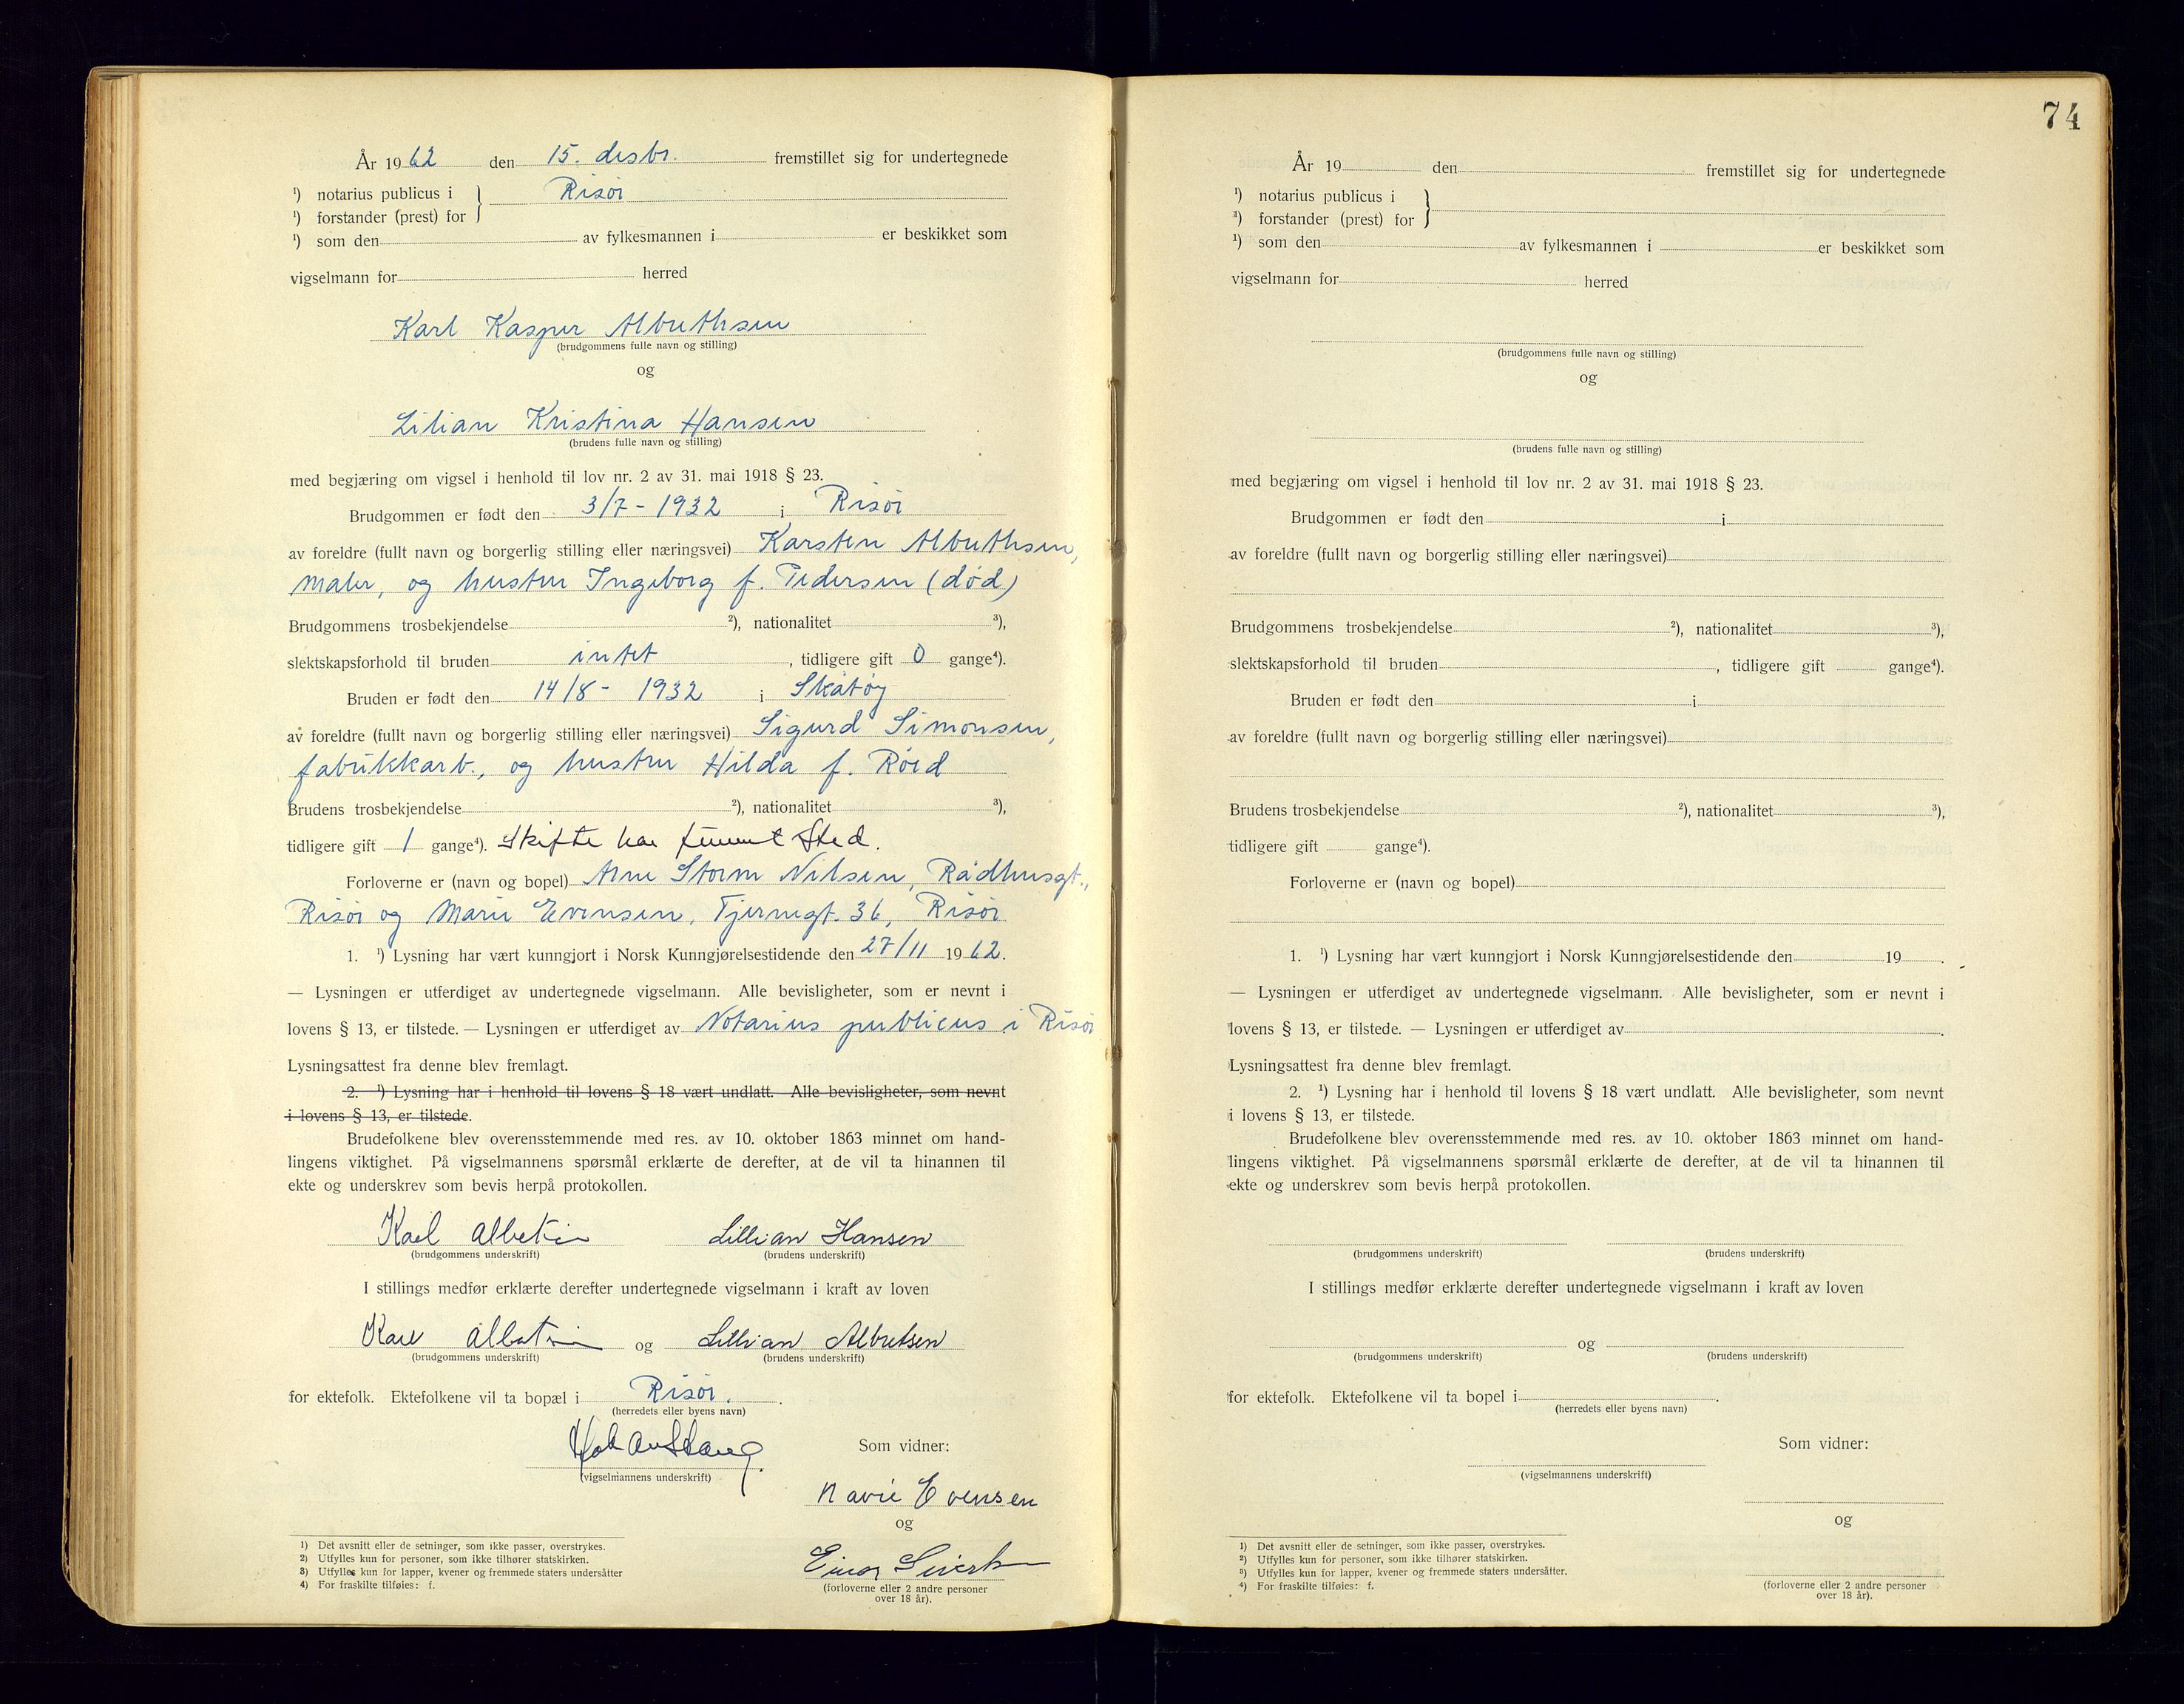 År 1962 den 15. desbr. fremstillet sig for undertegnede
¹) notarius publicus i } Risør
¹) forstander (prest) for
¹) som den av fylkesmannen i er beskikket som
vigselmann for herred
Karl Kasper Albrethsen
(brudgommens fulle navn og stilling)
og
Lilian Kristina Hansen
(brudens fulle navn og stilling)
med begjæring om vigsel i henhold til lov nr. 2 av 31. mai 1918 § 23.
Brudgommen er født den 3/7 - 1932 i Risør
av foreldre (fullt navn og borgerlig stilling eller næringsvei) Karsten Albrethsen,
maler, og hustru Ingeborg f. Pedersen (død)
Brudgommens trosbekjendelse ²), nationalitet ³),
slektskapsforhold til bruden intet, tidligere gift 0 gange⁴).
Bruden er født den 14/8 - 1932 i Skåtøy
av foreldre (fullt navn og borgerlig stilling eller næringsvei) Sigurd Simonsen,
fabrikkarb., og hustru Hilda f. Røed
Brudens trosbekjendelse ²), nationalitet ³),
tidligere gift 1 gange⁴). Skifte har funnet Sted.
Forloverne er (navn og bopel) Arne Storm Nilsen, Rådhusgt.,
Risør og Marie Evensen, Tjernsgt. 36, Risør
1. ¹) Lysning har vært kunngjort i Norsk Kunngjørelsestidende den 27/11 1962.
— Lysningen er utferdiget av undertegnede vigselmann. Alle bevisligheter, som er nevnt i
lovens § 13, er tilstede. — Lysningen er utferdiget av Notarius publicus i Risør
Lysningsattest fra denne blev fremlagt.
2. ¹) Lysning har i henhold til lovens § 18 vært undlatt. Alle bevisligheter, som nevnt
i lovens § 13, er tilstede.
Brudefolkene blev overensstemmende med res. av 10. oktober 1863 minnet om hand-
lingens viktighet. På vigselmannens spørsmål erklærte de derefter, at de vil ta hinannen til
ekte og underskrev som bevis herpå protokollen.
Karl Lillian Hansen
(brudgommens underskrift) (brudens underskrift)
I stillings medfør erklærte derefter undertegnede vigselmann i kraft av loven
Karl og Lillian Albretsen
(brudgommens underskrift) (brudens underskrift)
for ektefolk. Ektefolkene vil ta bopæl i Risør.
(herredets eller byens navn)
(vigselmannens underskrift)
Som vidner:
Marie Evensen
og
Einar
(forloverne eller 2 andre personer
over 18 år).
1) Det avsnitt eller de setninger, som ikke passer, overstrykes.
2) Utfylles kun for personer, som ikke tilhører statskirken.
3) Utfylles kun for lapper, kvener og fremmede staters undersåtter
4) For fraskilte tilføies: f.
74
År 19 den fremstillet sig for undertegnede
¹) notarius publicus i }
²) forstander (prest) for
¹) som den av fylkesmannen i er beskikket som
vigselmann for herred
(brudgommens fulle navn og stilling)
og
(brudens fulle navn og stilling)
med begjæring om vigsel i henhold til lov nr. 2 av 31. mai 1918 § 23.
Brudgommen er født den i
av foreldre (fullt navn og borgerlig stilling eller næringsvei)
Brudgommens trosbekjendelse ²), nationalitet ³),
slektskapsforhold til bruden , tidligere gift gange⁴).
Bruden er født den i
av foreldre (fullt navn og borgerlig stilling eller næringsvei)
Brudens trosbekjendelse ²), nationalitet ³),
tidligere gift gange⁴).
Forloverne er (navn og bopel)
1. ¹) Lysning har vært kunngjort i Norsk Kunngjørelsestidende den 19 .
— Lysningen er utferdiget av undertegnede vigselmann. Alle bevisligheter, som er nevnt i
lovens § 13, er tilstede. — Lysningen er utferdiget av .
Lysningsattest fra denne blev fremlagt.
2. ¹) Lysning har i henhold til lovens § 18 vært undlatt. Alle bevisligheter, som nevnt
i lovens § 13, er tilstede.
Brudefolkene blev overensstemmende med res. av 10. oktober 1863 minnet om hand-
lingens viktighet. På vigselmannens spørsmål erklærte de derefter, at de vil ta hinannen til
ekte og underskrev som bevis herpå protokollen.
(brudgommens underskrift) (brudens underskrift)
I stillings medfør erklærte derefter undertegnede vigselmann i kraft av loven
og
(brudgommens underskrift) (brudens underskrift)
for ektefolk. Ektefolkene vil ta bopel i .
(herredets eller byens navn)
Som vidner:
(vigselmannens underskrift)
og
(forloverne eller 2 andre personer
over 18 år).
1) Det avsnitt eller de setninger, som ikke passer, overstrykes.
2) Utfylles kun for personer, som ikke tilhører statskirken.
3) Utfylles kun for lapper, kvener og fremmede staters undersåtter.
4) For fraskilte tilføies: f.